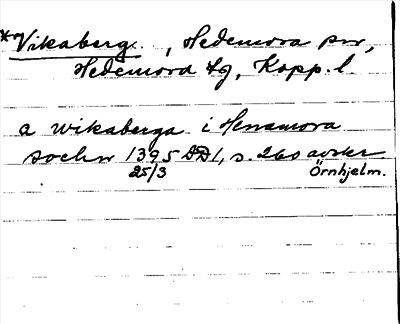 *Vikaberg. , Hedemora snr,
Hedemora tg, Kopp. l.
a wikaberga i Hensmora
sochn 1395 DD1, s. 260 avskr.
25/3 Örnhjelm.